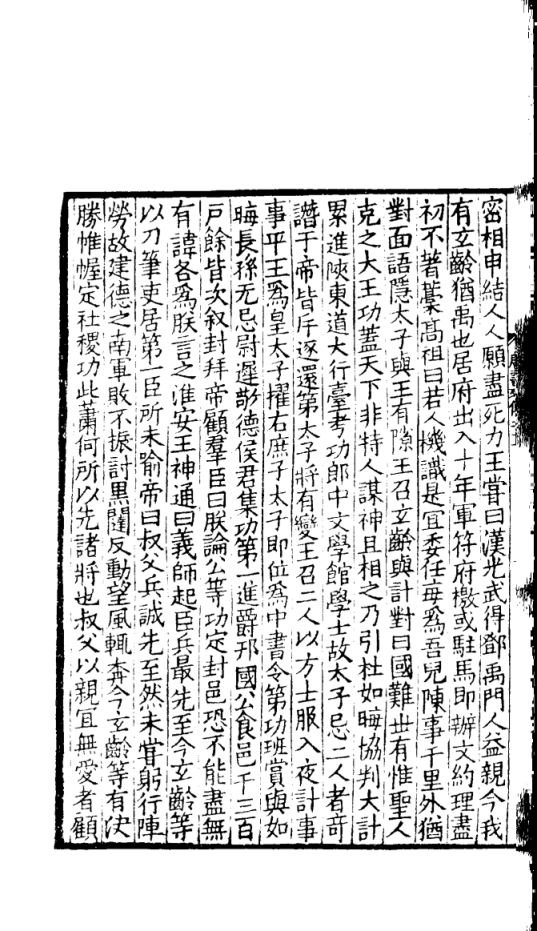 密相申結人人願盡死力王嘗曰漢光武得鄧禹門人益親今我
有玄齡猶禹也居府出入十年軍符府檄或駐馬即辦文約理盡
初不著藁高祖曰若人機識是宜委任每爲吾兒陳事千里外猶
對面語隱太子與王有隙王召玄齡與計對曰國難世有惟聖人
克之大王功蓋天下非特人謀神且相之乃引杜如晦協判大計
累進陝東道大行臺考功郎中文學館學士故太子忌二人者奇
譖于帝皆斥逐還第太子將有變王召二人以方士服入夜計事
事平王爲皇太子擢右庶子太子即位爲中書令第功班賞與如
晦長孫无忌尉遲敬德侯君集功第一進爵邗國公食邑千三百
戶餘皆次叙封拜帝顧羣臣曰朕論公等功定封邑恐不能盡無
有諱各爲朕言之淮安王神通曰義師起臣兵最先至今玄齡等
以刀筆吏居第一臣所未喻帝曰叔父兵誠先至然未嘗躬行陣
勞故建德之南軍敗不振討黑闥反動望風輒奔今玄齡等有決
勝帷幄定社稷功此蕭何所以先諸將也叔父以親宜無愛者顧